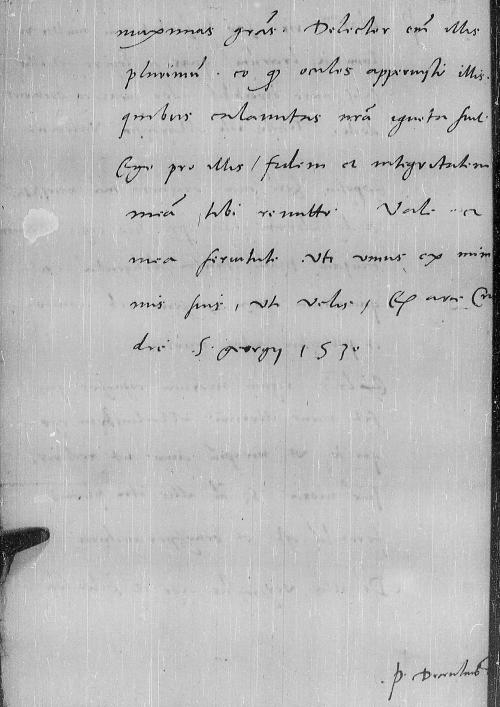 maximas grãs. Delector em̃ illis
plurimũ. eo qp oculos apperuisti illis.
quibus calamitas nrã ignota fuit
Ego pro illis / fidem et integritatem
meã tibi remitto. Vale et
mea seruitute. vti vnius ex mini
mis suis, vti velis, Ex arce
die S. georgij 1530